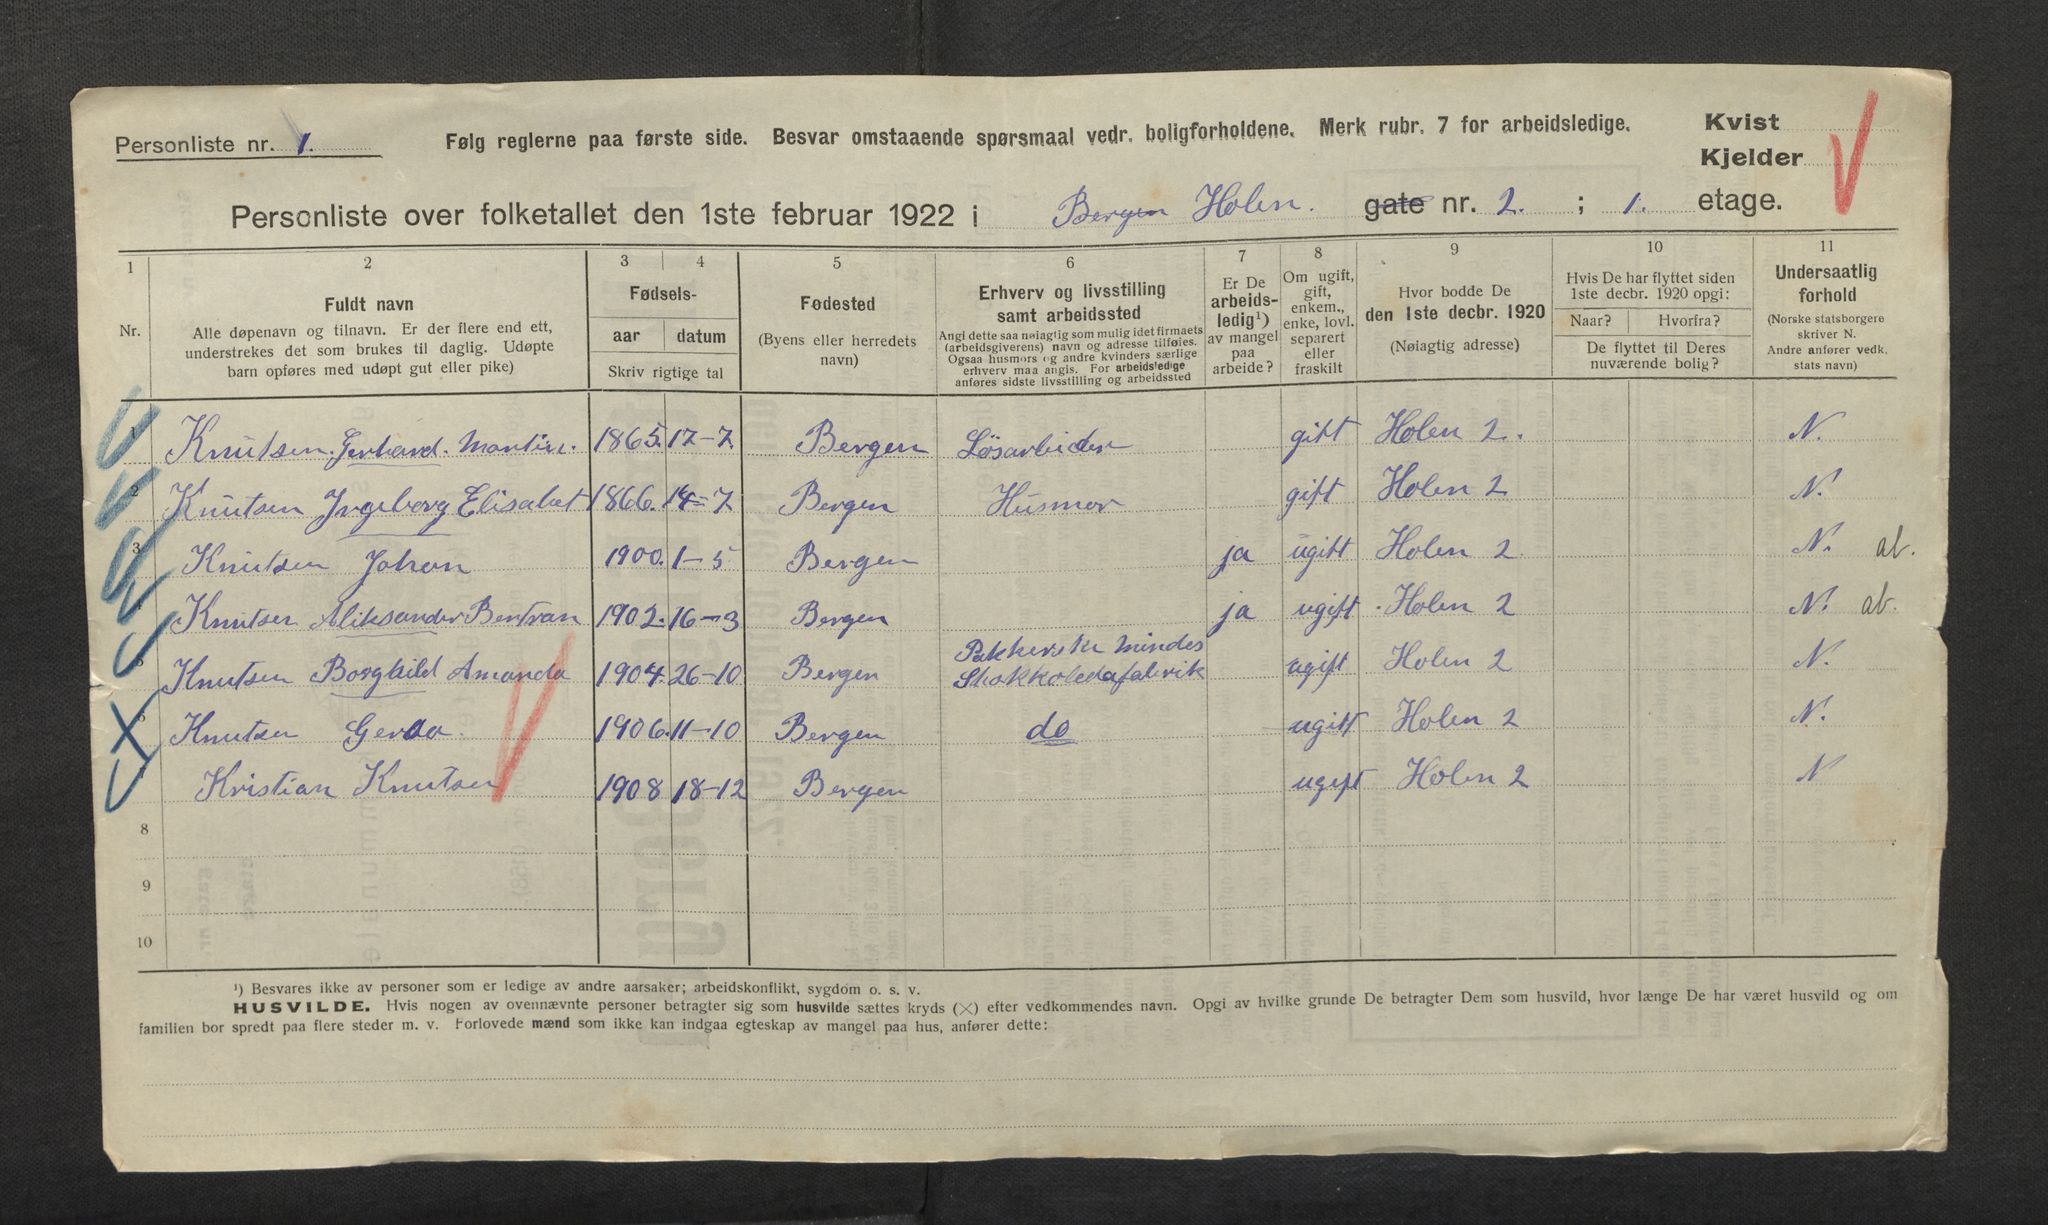 Personliste nr. 1.
Følg reglerne paa første side. Besvar omstaaende spørsmaal vedr. boligforholdene. Merk rubr. 7 for arbeidsledige.
Kvist
Kjelder
Personliste over folketallet den 1ste februar 1922 i Bergen Holen. gate nr. 2. ; 1. etage.
1 2 3 4 5 6 7 8 9 10 11
Nr.
Fuldt navn
Alle døpenavn og tilnavn. Er der flere end ett,
understrekes det som brukes til daglig. Udøpte
barn opføres med udøpt gut eller pike)
Fødsels-
aar datum
Skriv rigtige tal
Fødested
(Byens eller herredets
navn)
Erhverv og livsstilling
samt arbeidssted
Angi dette saa nøiagtig som mulig idet firmaets
(arbeidsgiverens) navn og adresse tilføies.
Ogsaa husmors og andre kvinders særlige
erhverv maa angis. For arbeidsledige
anføres sidste livsstilling og arbeidssted
Er De
arbeids-
ledig¹)
av mangel
paa
arbeide?
Om ugift,
gift,
enkem.,
enke, lovl.
separert
eller
fraskilt
Hvor bodde De
den 1ste decbr. 1920
(Nøiagtig adresse)
Hvis De har flyttet siden
1ste decbr. 1920 opgi:
Naar? Hvorfra?
De flyttet til Deres
nuværende bolig?
Undersaatlig
forhold
(Norske statsborgere
skriver N.
Andre anfører vedk.
stats navn)
1 Knutsen. Gerhard. Martin. 1865. 12-7. Bergen Løsarbeider gift Holen 2. N.
2 Knutsen Ingeborg Elisabet 1866. 14-7 Bergen Husmor gift Holen 2 N.
3 Knutsen Johan 1900. 1-5 Bergen ja ugift Holen 2 N. al.
4 Knutsen Aliksander Bertran 1902. 16-3 Bergen ja ugift Holen 2 N. al.
5 Knutsen Borghild Amanda 1904. 26-10 Bergen Pakkerske Mindes
Shokkoledafabrik ugift Holen 2 N.
6 Knutsen Gerda. 1906. 11-10 Bergen do ugift Holen 2 N.
Kristian Knutsen 1908 18-12 Bergen ugift Holen 2 N
8
9
10
¹) Besvares ikke av personer som er ledige av andre aarsaker; arbeidskonflikt, sygdom o. s. v.
HUSVILDE. Hvis nogen av ovennævnte personer betragter sig som husvilde sættes kryds (X) efter vedkommendes navn. Opgi av hvilke grunde De betragter Dem som husvild, hvor længe De har været husvild og om
familien bor spredt paa flere steder m. v. Forlovede mænd som ikke kan indgaa egteskap av mangel paa hus, anfører dette: